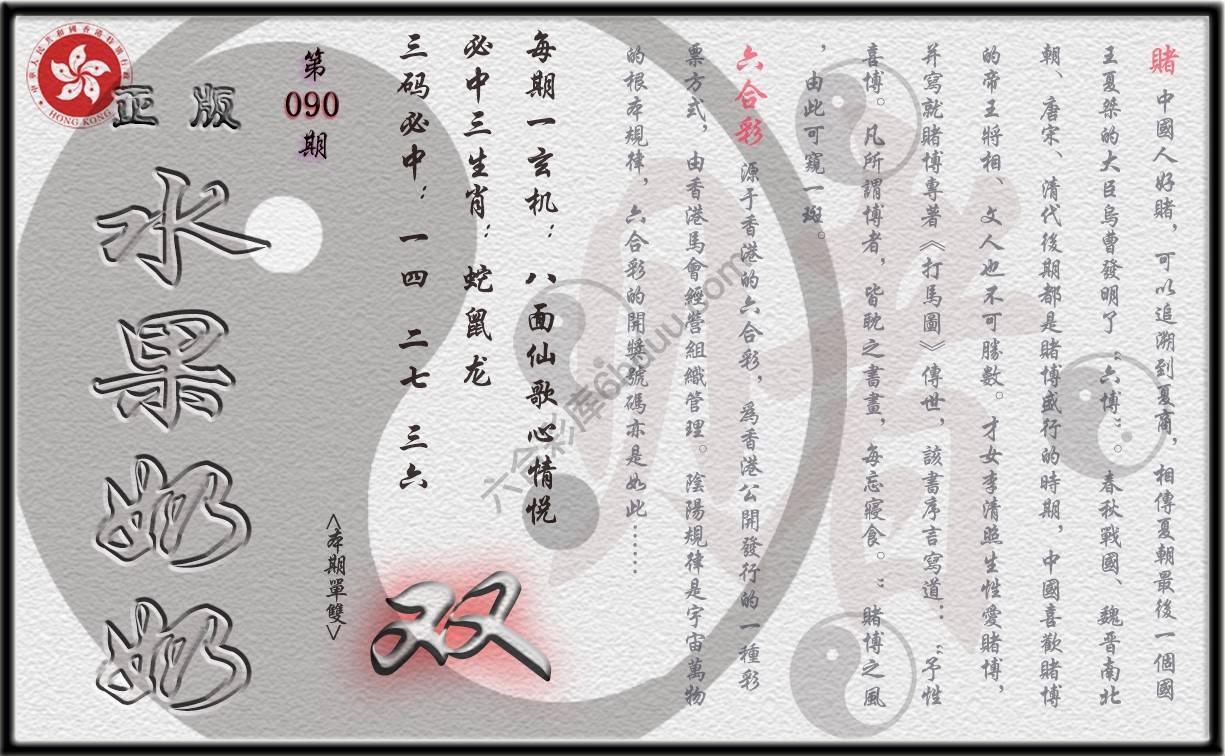 賭 中國人好賭，可以追溯到夏商，相傳夏朝最後一個國
王夏桀的大臣烏曹發明了“六博”。春秋戰國、魏晋南北
朝、唐宋、清代後期都是賭博盛行的時期，中國喜歡賭博
的帝王將相、文人也不可勝數。才女李清照生性愛賭博，
并寫就賭博專著《打馬圖》傳世，該書序言寫道：“予性
喜博。凡所謂博者，皆耽之書畫，每忘寢食。”賭博之風
，由此可窺一斑。
六合彩 源于香港的六合彩，爲香港公開發行的一種彩
票方式，由香港馬會經營組織管理。陰陽規律是宇宙萬物
的根本規律，六合彩的開獎號碼亦是如此……
每期一玄机：八面仙歌心情悦
必中三生肖：蛇鼠龙
三码必中：一四 二七 三六
第
090
期
<本期單雙>
双
正版
水果奶奶
中華人民共和國香港特別行政區
HONG KONG
六合彩库6hduu.com